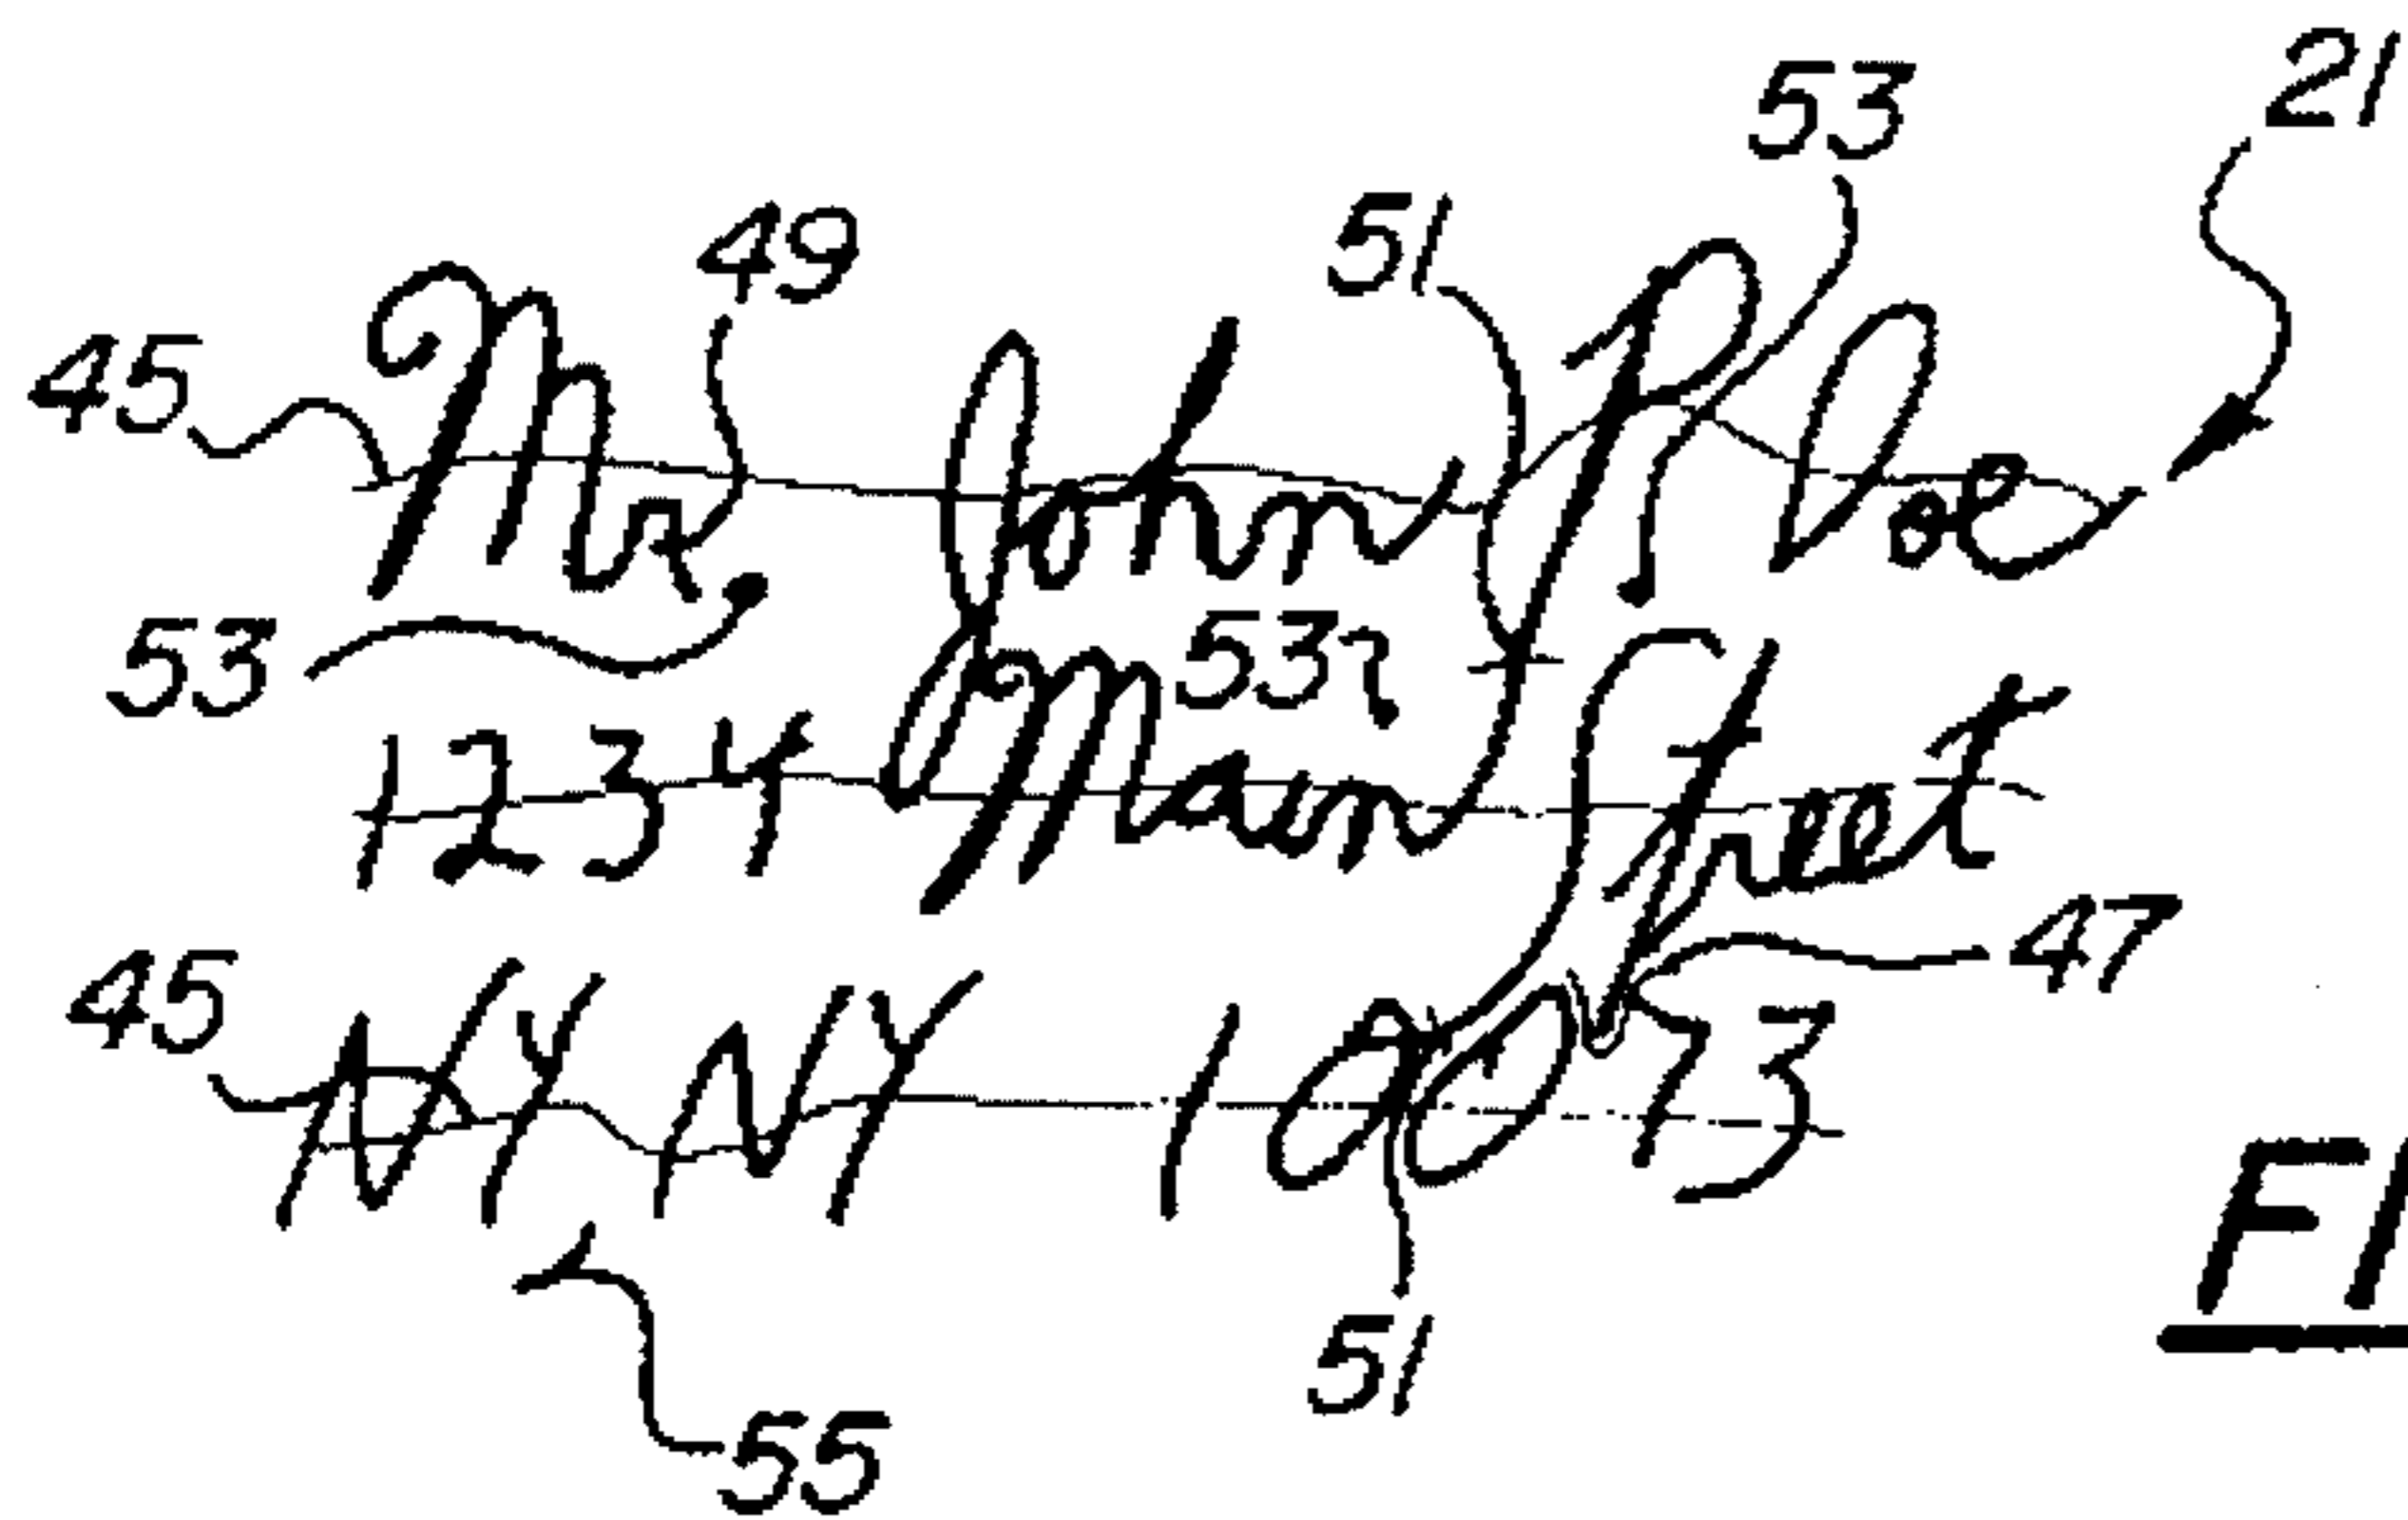 21
53
49 51
45 Mr. John P. Doe
53 53
1234 Main Street
47
45 NY NY 10073
FI
51
55